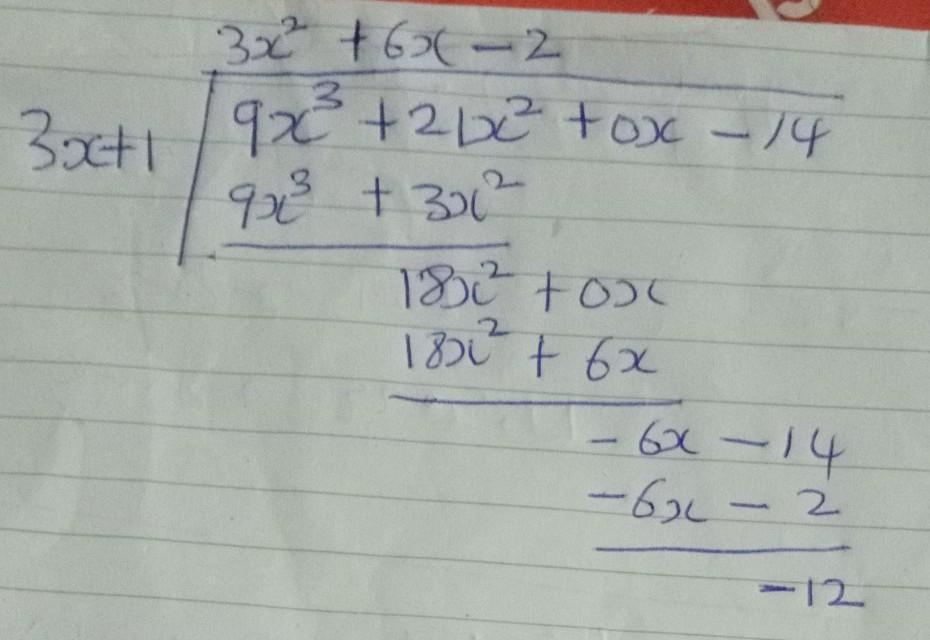 3x² + 6x - 2
3x+1 9x³ + 21x² + 0x - 14
9x³ + 3x²
18x² + 0x
18x² + 6x
- 6x - 14
- 6x - 2
-12